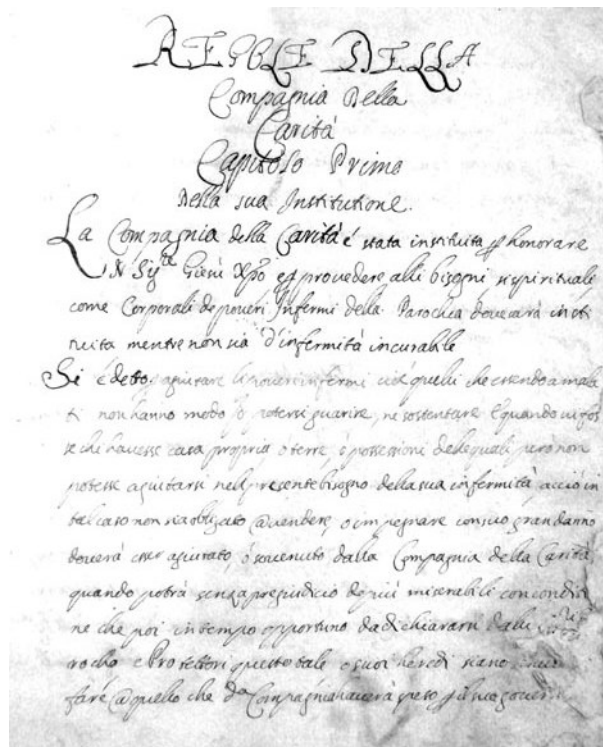 REGOLE DELLA
Compagnia Della
Carità
Capitolo Primo
Della sua Institutione.
La Compagnia della Carità é stata instituita p honorare
N Sig.re Giesù Xpo e p provedere alli bisogni si spirituali,
come Corporali de poveri Infermi della Parochia dove sarà insti
tuita mentre non sia d'infermità incurabile
Si é detto agiutare li poveri infermi cioè quelli che essendo amala
ti non hanno modo p potersi guarire, ne sostentare E quando vi fos
se chi havesse casa propria ó terre, ó possessioni delle quali peró non
potesse agiutarsi nel presente bisogno della sua infermità, acció in
tal caso non sia obligato a vendere, o impegnare con suo gran danno
doverà esser agiutato, ó sovenuto dalla Compagnia della Carità,
quando potrà senza pregiudicio de più miserabili con condi
ne che poi in tempo opportuno da dichiararsi dalli
rocho e Protettori questo tale o suoi heredi siano
fare a quello che d.a Compagnia haverà speso p il suo